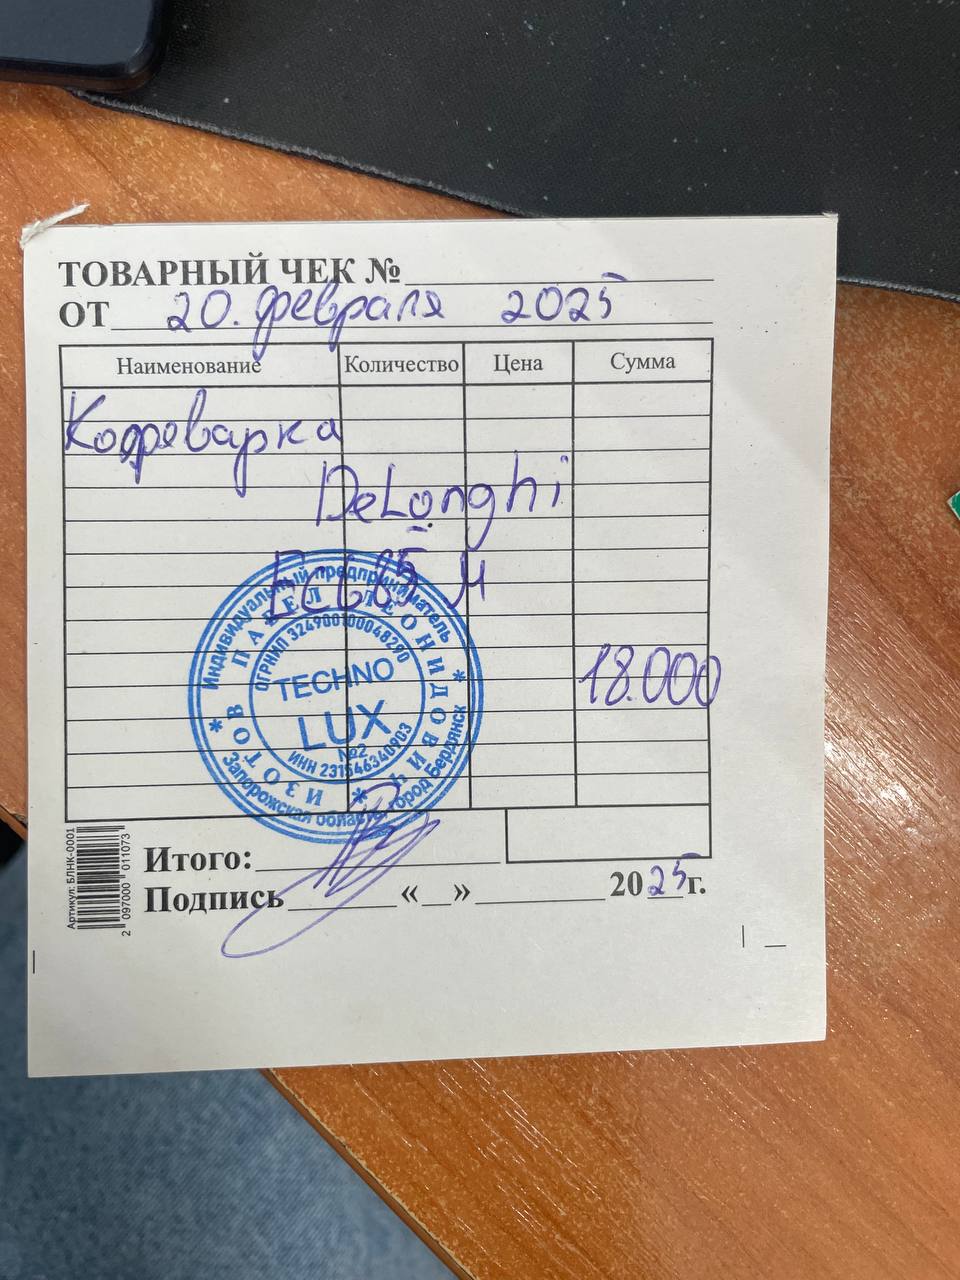 ТОВАРНЫЙ ЧЕК №
ОТ 20. февраля 2025
Наименование Количество Цена Сумма
Кофеварка
DeLonghi
EC685 М
18.000
Индивидуальный предприниматель
ИЗОТОВ ПАВЕЛ ЛЕОНИДОВИЧ
ОГРНИП 324900100048290
TECHNO
LUX
№2
ИНН 231546340903
Запорожская область, город Бердянск
Итого:
Подпись « » 2025г.
Артикул: БЛНК-0001
2 097000 011073